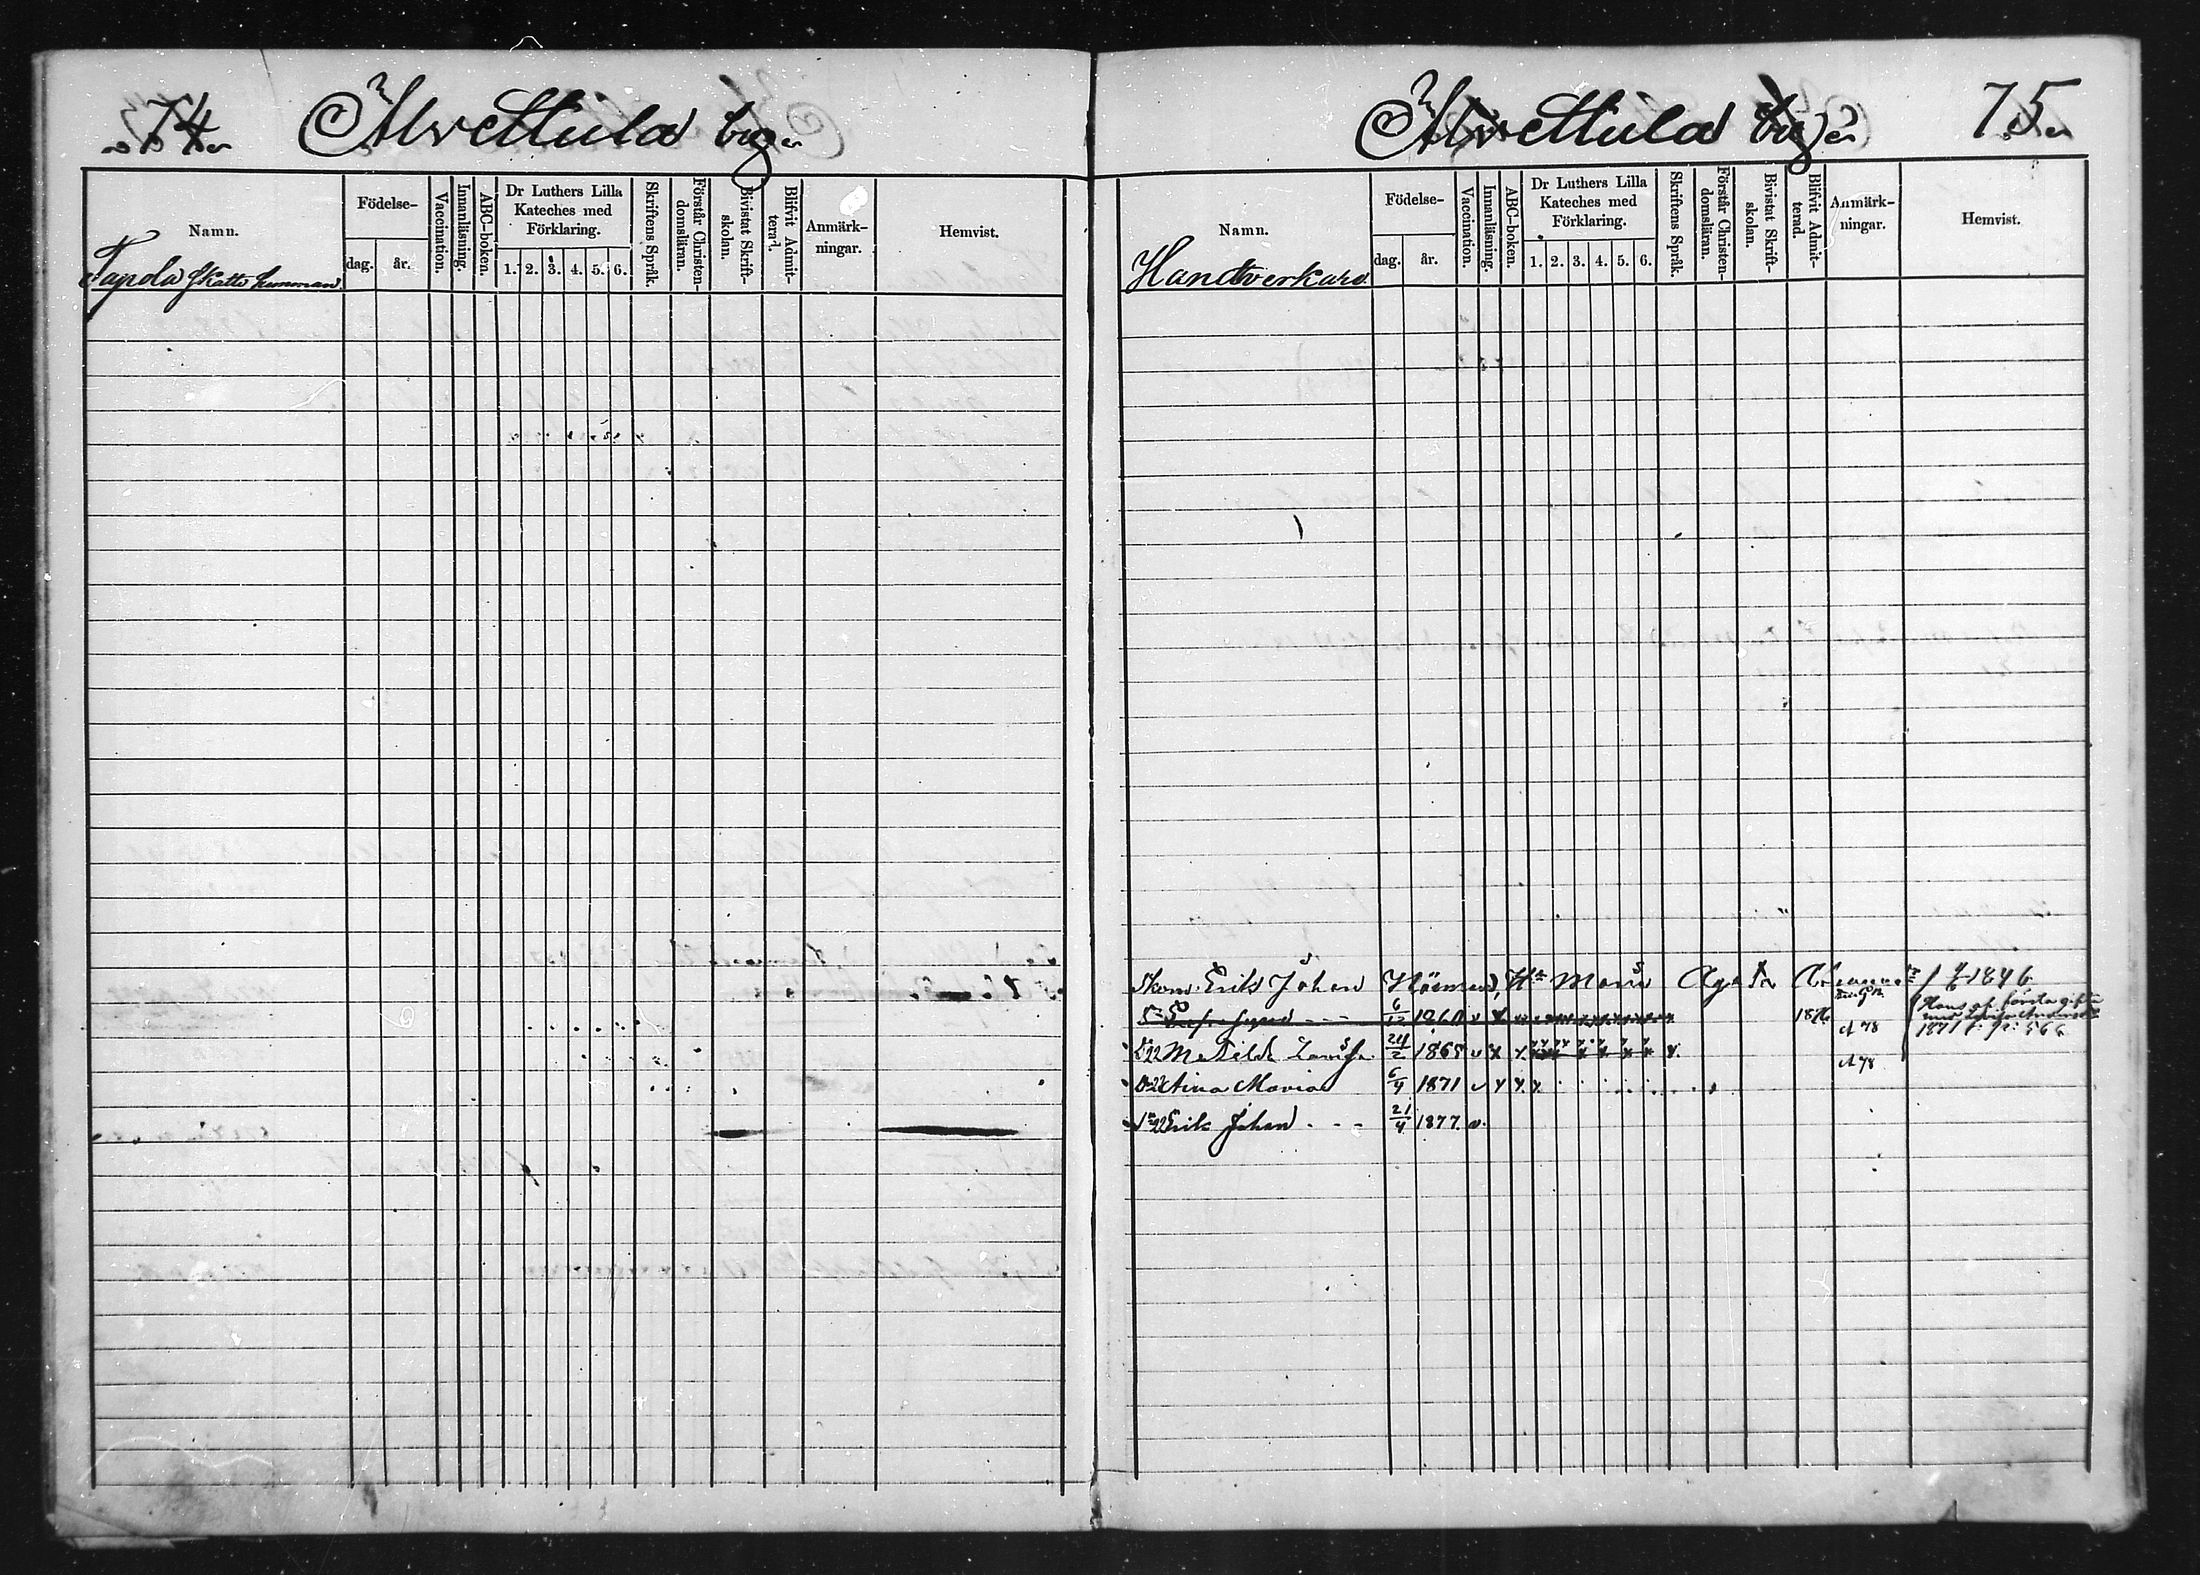 74.
Alvettula by.
Namn.
Födelse-
dag.
år.
Vaccination.
Innanläsning.
ABC-boken.
Dr Luthers Lilla
Kateches med
Förklaring.
1. 2. 3. 4. 5. 6.
Skriftens Språk.
Förstår Christen-
domsläran.
Bivistat Skrift-
skolan.
Blifvit Admit-
terad.
Anmärk-
ningar.
Hemvist.
Alvettula by.
75.
Namn.
Födelse-
dag.
år.
Vaccination.
Innanläsning.
ABC-boken.
Dr Luthers Lilla
Kateches med
Förklaring.
1. 2. 3. 4. 5. 6.
Skriftens Språk.
Förstår Christen-
domsläran.
Bivistat Skrift-
skolan.
Blifvit Admit-
terad.
Anmärk-
ningar.
Hemvist.
Handtverkare.
Skom. Erik Johan Maria Agata 1846
6/12 1860 v
Matilda 24/2 1865 v A 78
Maria 6/9 1871 v
Erik Johan 21/4 1877 v.